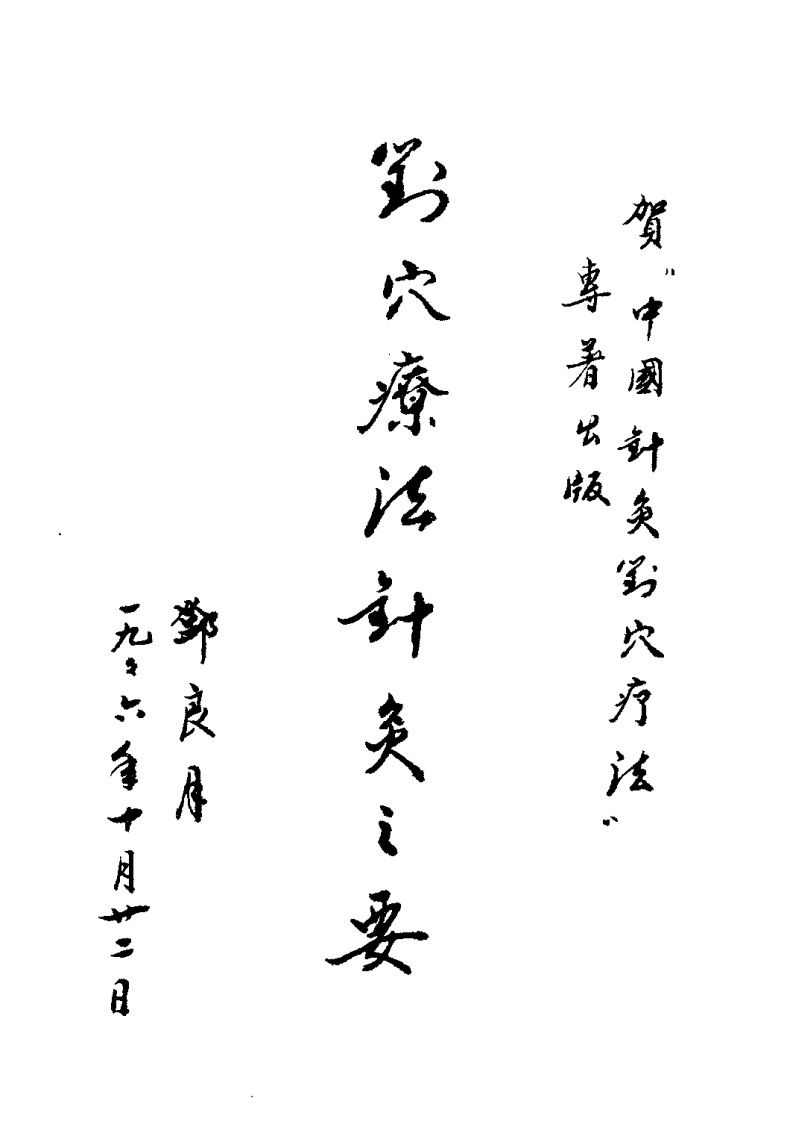 賀"中國針灸對穴疗法"
專著出版
對穴療法針灸之要
鄧良月
一九々六年十月廿二日